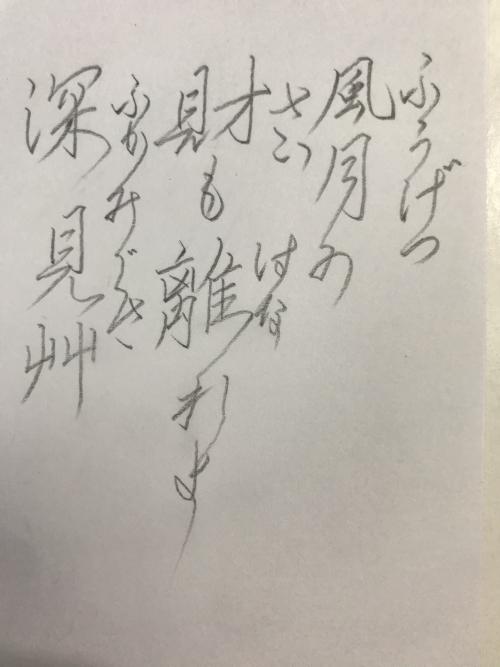 ふうげつ
風月の
さい はな
財も離れよ
ふかみぐさ
深見艸